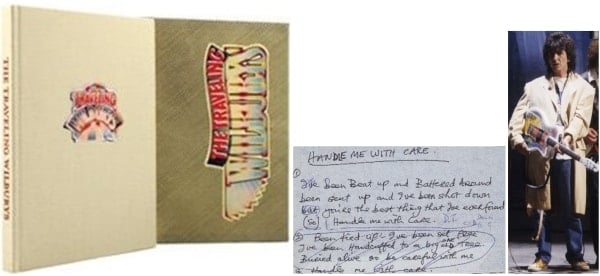 THE TRAVELING WILBURYS
TRAVELING
THE TRAVELING
WILBURYS
HANDLE ME WITH CARE.
①
I've been Beat up and Battered around
been sent up and I've been shot down
But you're the best thing that I've ever found
(So) Handle me with Care.
② Been tied up I've been set Free
I've been Handcuffed to a big old Tree
Buried alive so be careful with me
Handle me with care